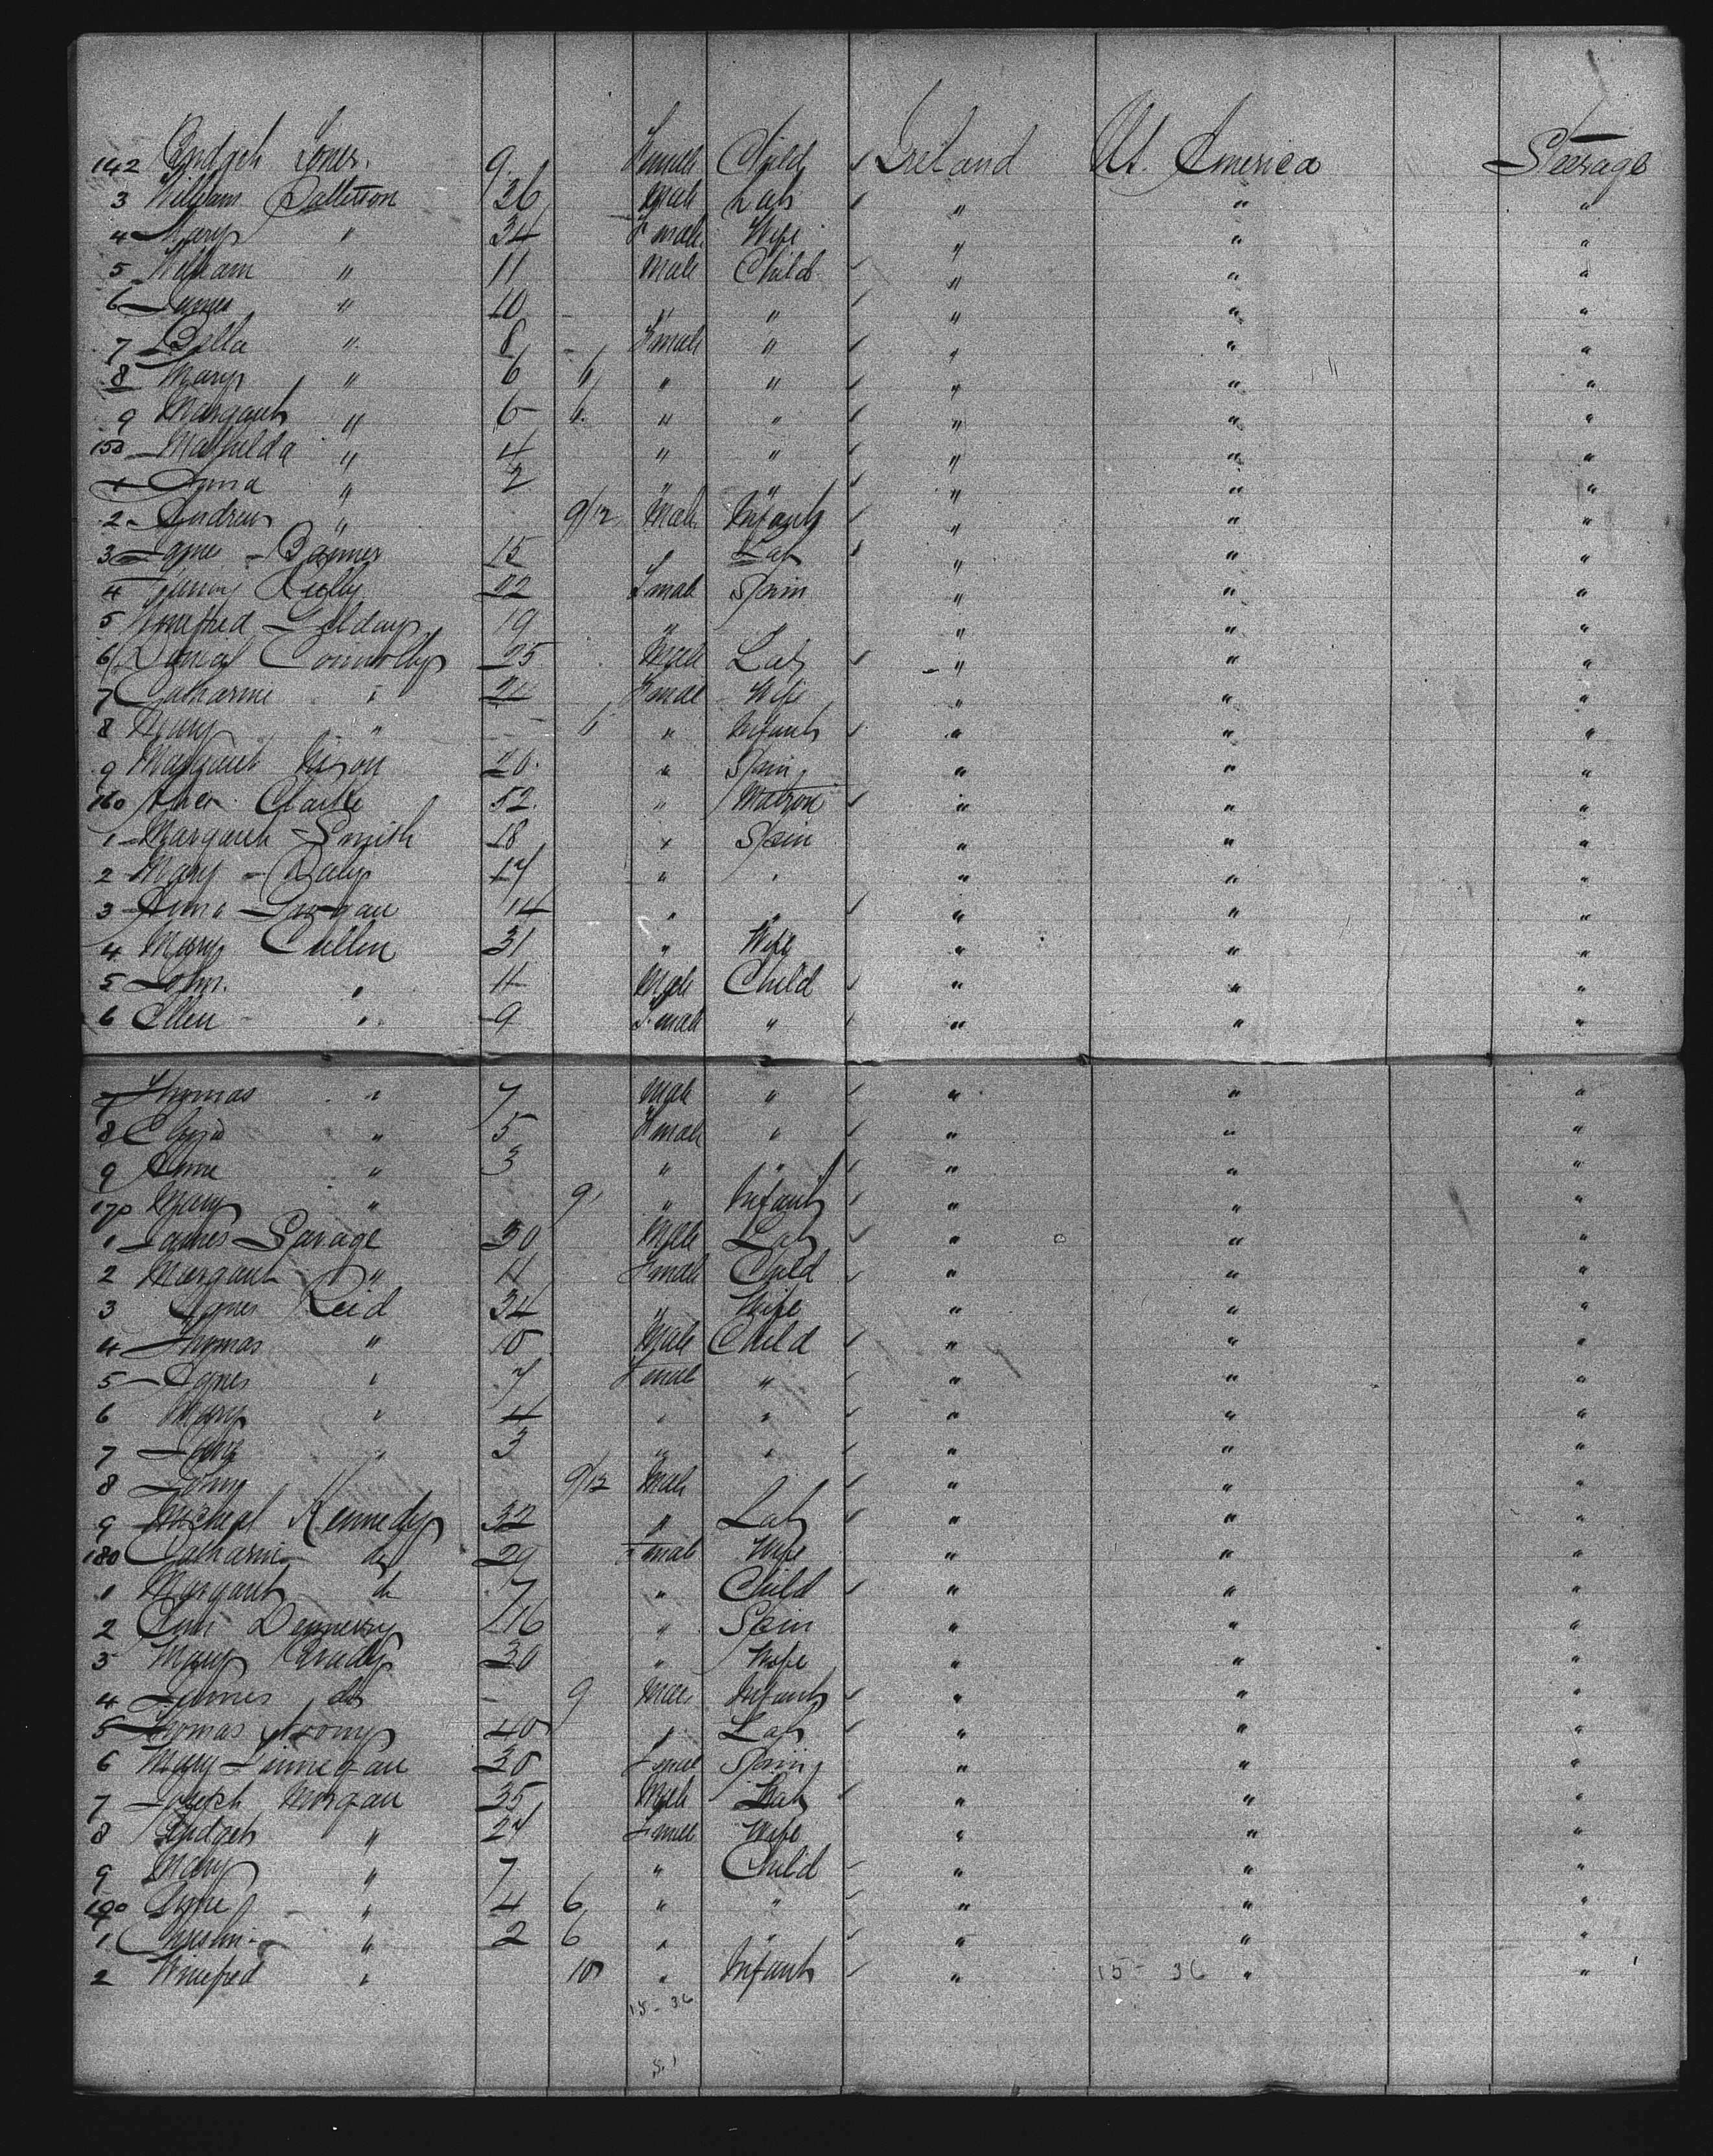 142 Bridget Jones. 9. Female Child Ireland U. America Steerage
3 William Patterson 36 Male Lab " " "
4 Mary " 34 Female Wife " " "
5 William " 11 Male Child " " "
6 James " 10 " " " " "
7 Bella " 8 Female " " " "
8 Mary " 6 " " " " "
9 Margaret " 6 " " " " "
150 Mathilda " 4 " " " " "
1 Anna " 2 " " " " "
2 Andrew " 9/12 Male Infant " " "
3 15 " Lab " " "
4 Kelly 22 Female Spin " " "
5 Winifred 19 " " " " "
6 Connolly 25 Male Lab " " "
7 Catharine " 24 Female Wife " " "
8 Mary " " Infant " " "
9 Margaret Nixon 20 " Spin " " "
160 Clarke 52 " Matron " " "
1 Margaret Smith 18 " Spin " " "
2 Mary Daly 17 " " " " "
3 14 " " " " "
4 Mary Cullen 31 " Wife " " "
5 John " 11 Male Child " " "
6 Ellen " 9 Female " " " "
7 Thomas " 7 Male " " " "
8 Eliza " 5 Female " " " "
9 Anne " 3 " " " " "
170 Mary " 9 " Infant " " "
1 James Savage 30 Male Lab " " "
2 Margaret " 11 Female Child " " "
3 Agnes Reid 34 " Wife " " "
4 Thomas " 10 Male Child " " "
5 Agnes " 7 Female " " " "
6 Mary " 4 " " " " "
7 " 3 " " " " "
8 John " 9/12 Male " " "
9 Micheal Kennedy 32 " Lab " " "
180 Catharine do 29 Female Wife " " "
1 Margaret do 7 " Child " " "
2 Ann Dennery 16 " Spin " " "
3 Mary Brady 30 " Wife " " "
4 James do 9 Male Infant " " "
5 Thomas 40 " Lab " " "
6 Mary Finnegan 20 Female Spin " " "
7 Joseph Morgan 35 Male Lab " " "
8 Bridget " 27 Female Wife " " "
9 Mary " 7 " Child " " "
190 Anne " 4 6 " " " " "
1 " 2 6 " " " " "
2 Winefred " 10 " Infant " 15-36 " "
15-36